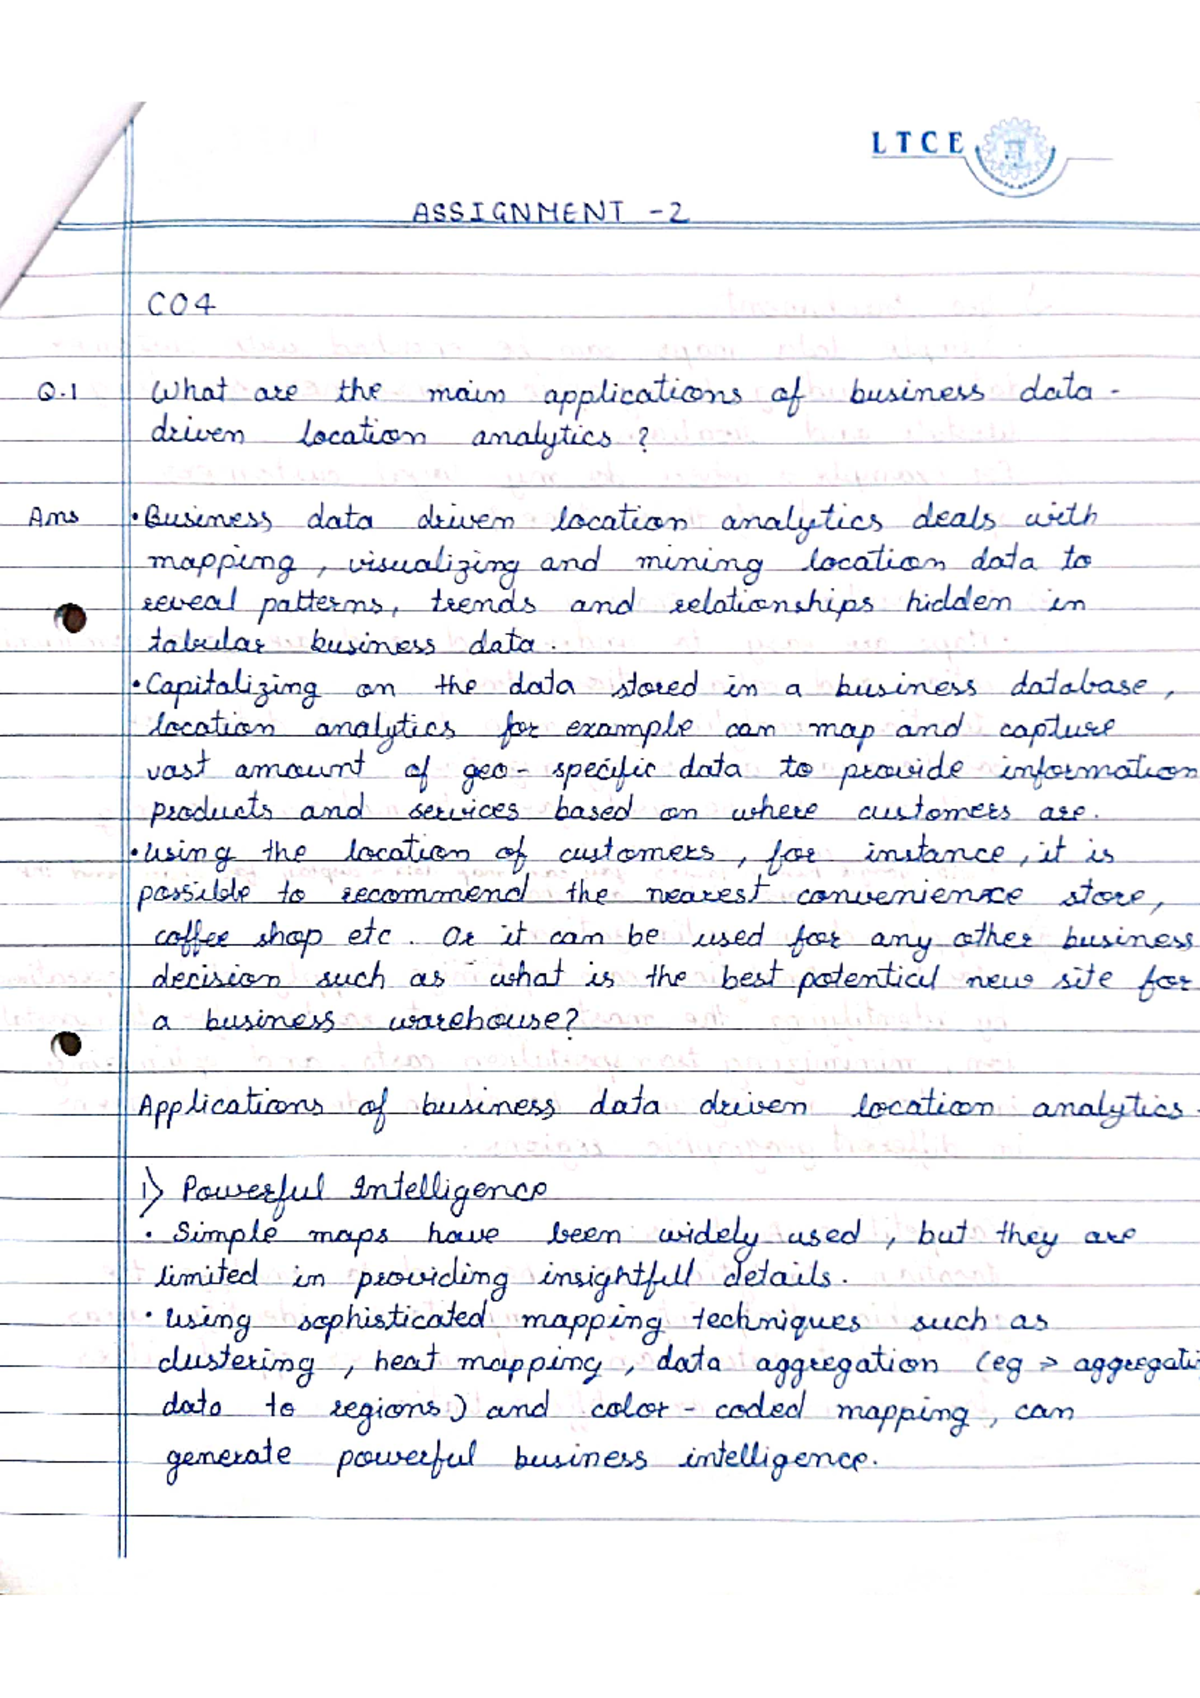 LTCE
ASSIGNMENT -2
CO4
Q.1 What are the main applications of business data-
driven location analytics?
Ans •Business data driven location analytics deals with
mapping, visualizing and mining location data to
reveal patterns, trends and relationships hidden in
tabular business data.
•Capitalizing on the data stored in a business database,
location analytics for example can map and capture
vast amount of geo-specific data to provide information
products and services based on where customers are.
•Using the location of customers, for instance, it is
possible to recommend the nearest convenience store,
coffee shop etc. Or it can be used for any other business
decision such as what is the best potential new site for
a business warehouse?
Applications of business data driven location analytics.
1) Powerful Intelligence
• Simple maps have been widely used, but they are
limited in providing insightfull details.
• Using sophisticated mapping techniques such as
clustering, heat mapping, data aggregation (eg → aggregati
data to regions) and color-coded mapping, can
generate powerful business intelligence.